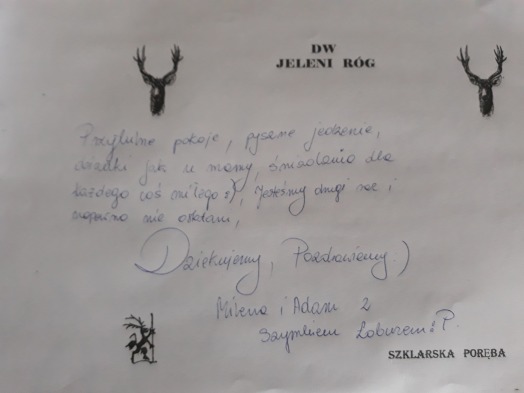 DW
JELENI RÓG
Przytulne pokoje, pyszne jedzenie,
obiadki jak u mamy, śniadania dla
każdego coś miłego :), Jesteśmy drugi raz i
na pewno nie ostatni,
Dziękujemy, Pozdrawiamy :)
Milena i Adam z
Szymkiem Łobuzem :P.
SZKLARSKA PORĘBA